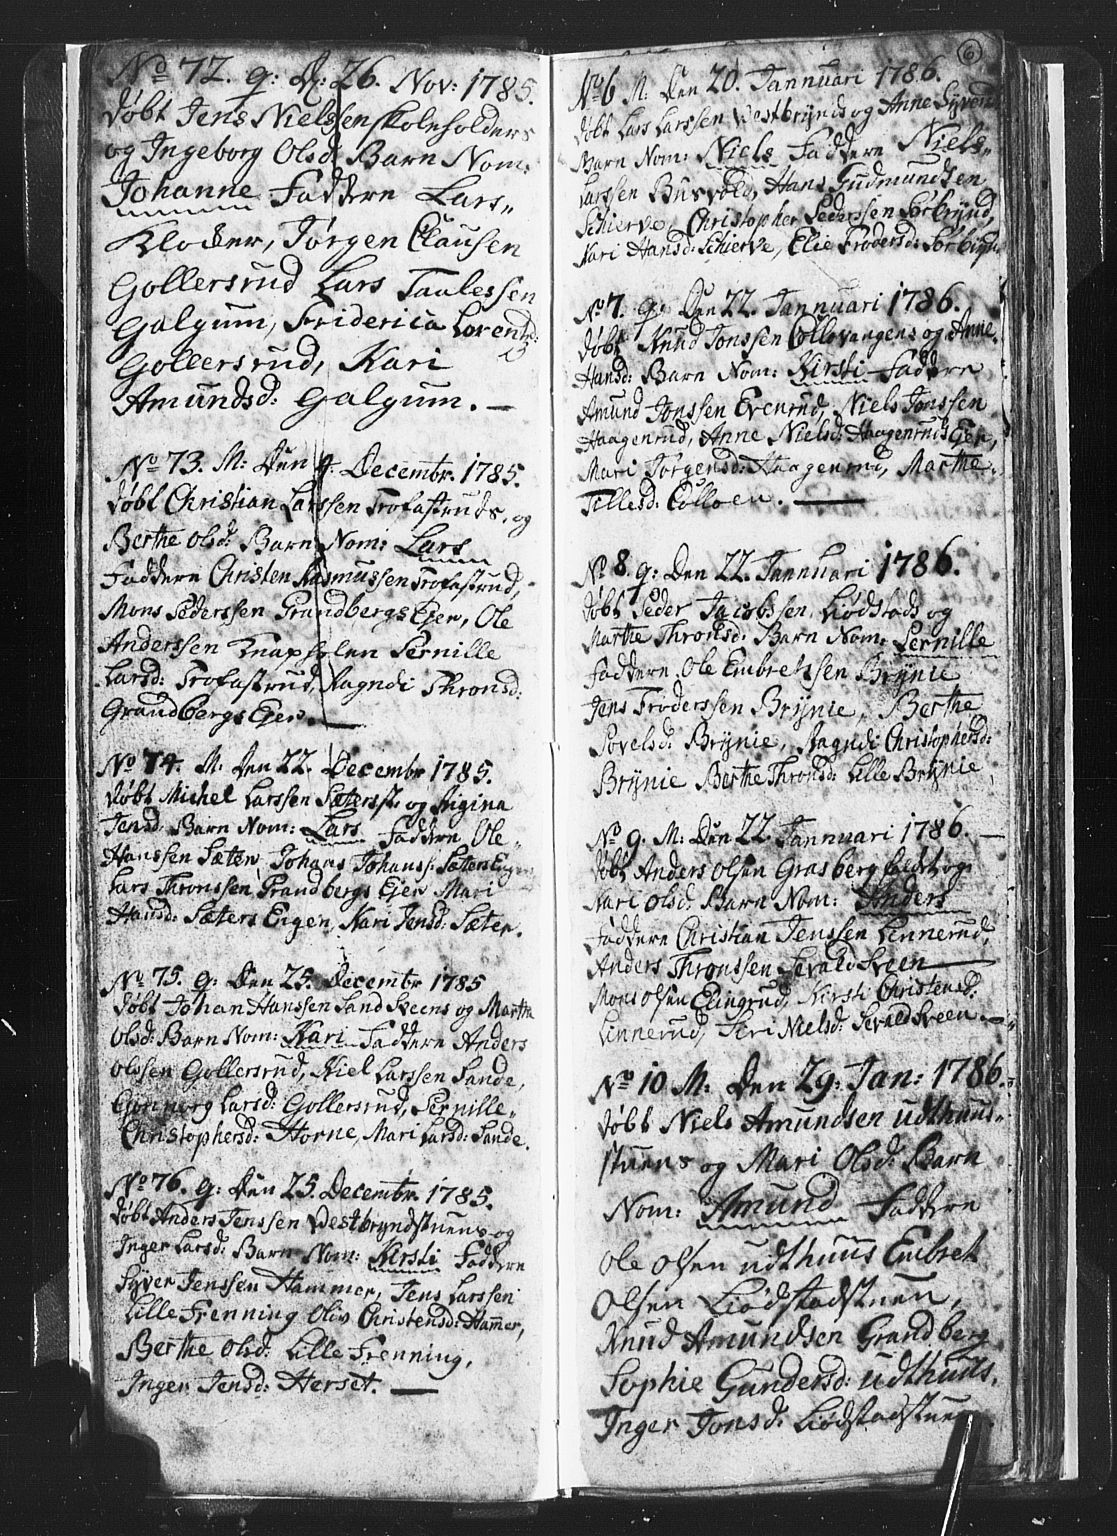 No 72. g: D: 26. Nov: 1785.
døbt Jens Nielssen skoleholders
og Ingeborg Olsd: Barn Nom:
Johanne Faddere Lars
Klocker, Jørgen Clausen
Gollersrud Lars Taalessen
Galgum, Friderica Lorentzd:
Gollersrud, Kari
Amundsd: Galgum. —
No 73. M: Den 4. Decembr. 1785.
døbt Christian Larssen Trofastruds, og
Berthe Olsd: Barn Nom: Lars
Faddere Christen Rasmussen Trofastrud,
Mons Pederssen Grandbergs Ejer, Ole
Anderssen Knapholen Pernille
Larsd: Trofastrud, Ragndi Thronsd:
Grandbergs Ejer. —
No 74. M. Den 22. Decembr 1785.
døbt Michel Larssen Sæters og Rigina
Jensd: Barn Nom: Lars Faddere Ole
Hanssen Sæter, Johans Sæter
Lars Thronssen Grandbergs Ejer Mari
Hansd: Sæters Engen, Kari Jensd: Sæter.
No 75. g: Den 25. Decembr 1785
døbt Johan Hanssen Sandsveens og Marthe
Olsd: Barn Nom: Kari Faddere Anders
Olssen Gollersrud, Niel Larssen Sande,
Gunnborg Larsd: Gollersrud, Pernille
Christophersd: Horne, Mari Larsd: Sande.
No 76. g: Den 25. Decembr 1785.
døbt Anders Jenssen Vestbryndstuens og
Inger Larsd: Barn Nom: Kirsti Faddere
Syver Jenssen Hammer, Jens Larssen
Lille Frenning Oliv Christensd: Hammer,
Berthe Olsd: Lille Frenning,
Inger Jensd: Herset. —
6
No 6 M: Den 20. Jannuari 1786.
døbt Lars Larssen Vestbrynds og Anne Syversd:
Barn Nom: Niels Faddere Niels
Larssen Busvold, Hans Gudmundsen
Schierve, Christopher Pederssen Sørbrynd,
Kari Hansd: Schierve, Elie Frodersd: Sørbrynd
No 7. g: Den 22. Jannuari 1786.
døbt Knud Jonssen Collovangens og Anne
Hansd: Barn Nom: Kirsti Faddere
Amund Jonssen Evenrud, Niels Jonssen
Haagenrud, Anne Nielsd: Haagenruds Ejer,
Mari Jørgensd: Haagenrud, Marthe
Tillesd: Colloen. —
No 8. g: Den 22. Jannuari 1786.
døbt Peder Jacobssen Liødstads og
Marthe Thronsd: Barn Nom: Pernille
Faddere Ole Embretssen Brynie
Jens Froderssen Brynie, Berthe
Povelsd: Brynie, Ragndi Christophersd:
Brynie Berthe Thronsd: Lille Brynie,
No 9. M: Den 22 Jannuari 1786. —
døbt Anders Olsen Grasberg og
Kari Olsd: Barn Nom: Anders
Faddere Christian Jenssen Linnerud,
Anders Thronssen Sevaldsveen —
Mons Olsen Elingrud, Kirsti Christensd:
Linnerud, Siri Nielsd: Sevaldsveen. —
No 10 M: Den 29: Jan: 1786.
døbt Niels Amundsen udthuus
stuens og Mari Olsd: Barn
Nom: Amund Faddere
Ole Olsen udthuus Embret
Olsen Liødstadstuen,
Knud Amundsen Grandberg
Sophie Gundersd: udthuus,
Inger Jonsd: Liødstadstuen.